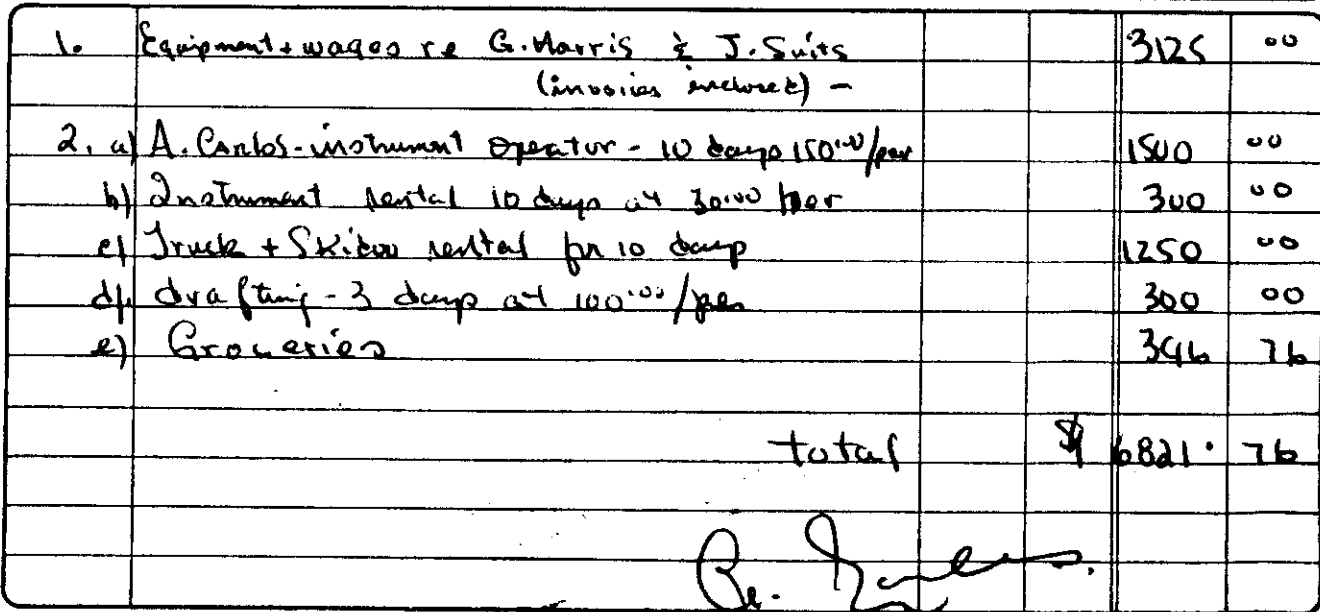 1. Equipment + wages re G. Harris & J. Suits 3125 00
(invoices enclosed) -
2. a) A. Carlos - instrument operator - 10 days 150.00/per 1500 00
b) Instrument rental 10 days at 30.00 per 300 00
c) Truck + Skidoo rental for 10 days 1250 00
d) drafting - 3 days at 100.00/per 300 00
e) Groceries 346 76
total $ 6821. 76